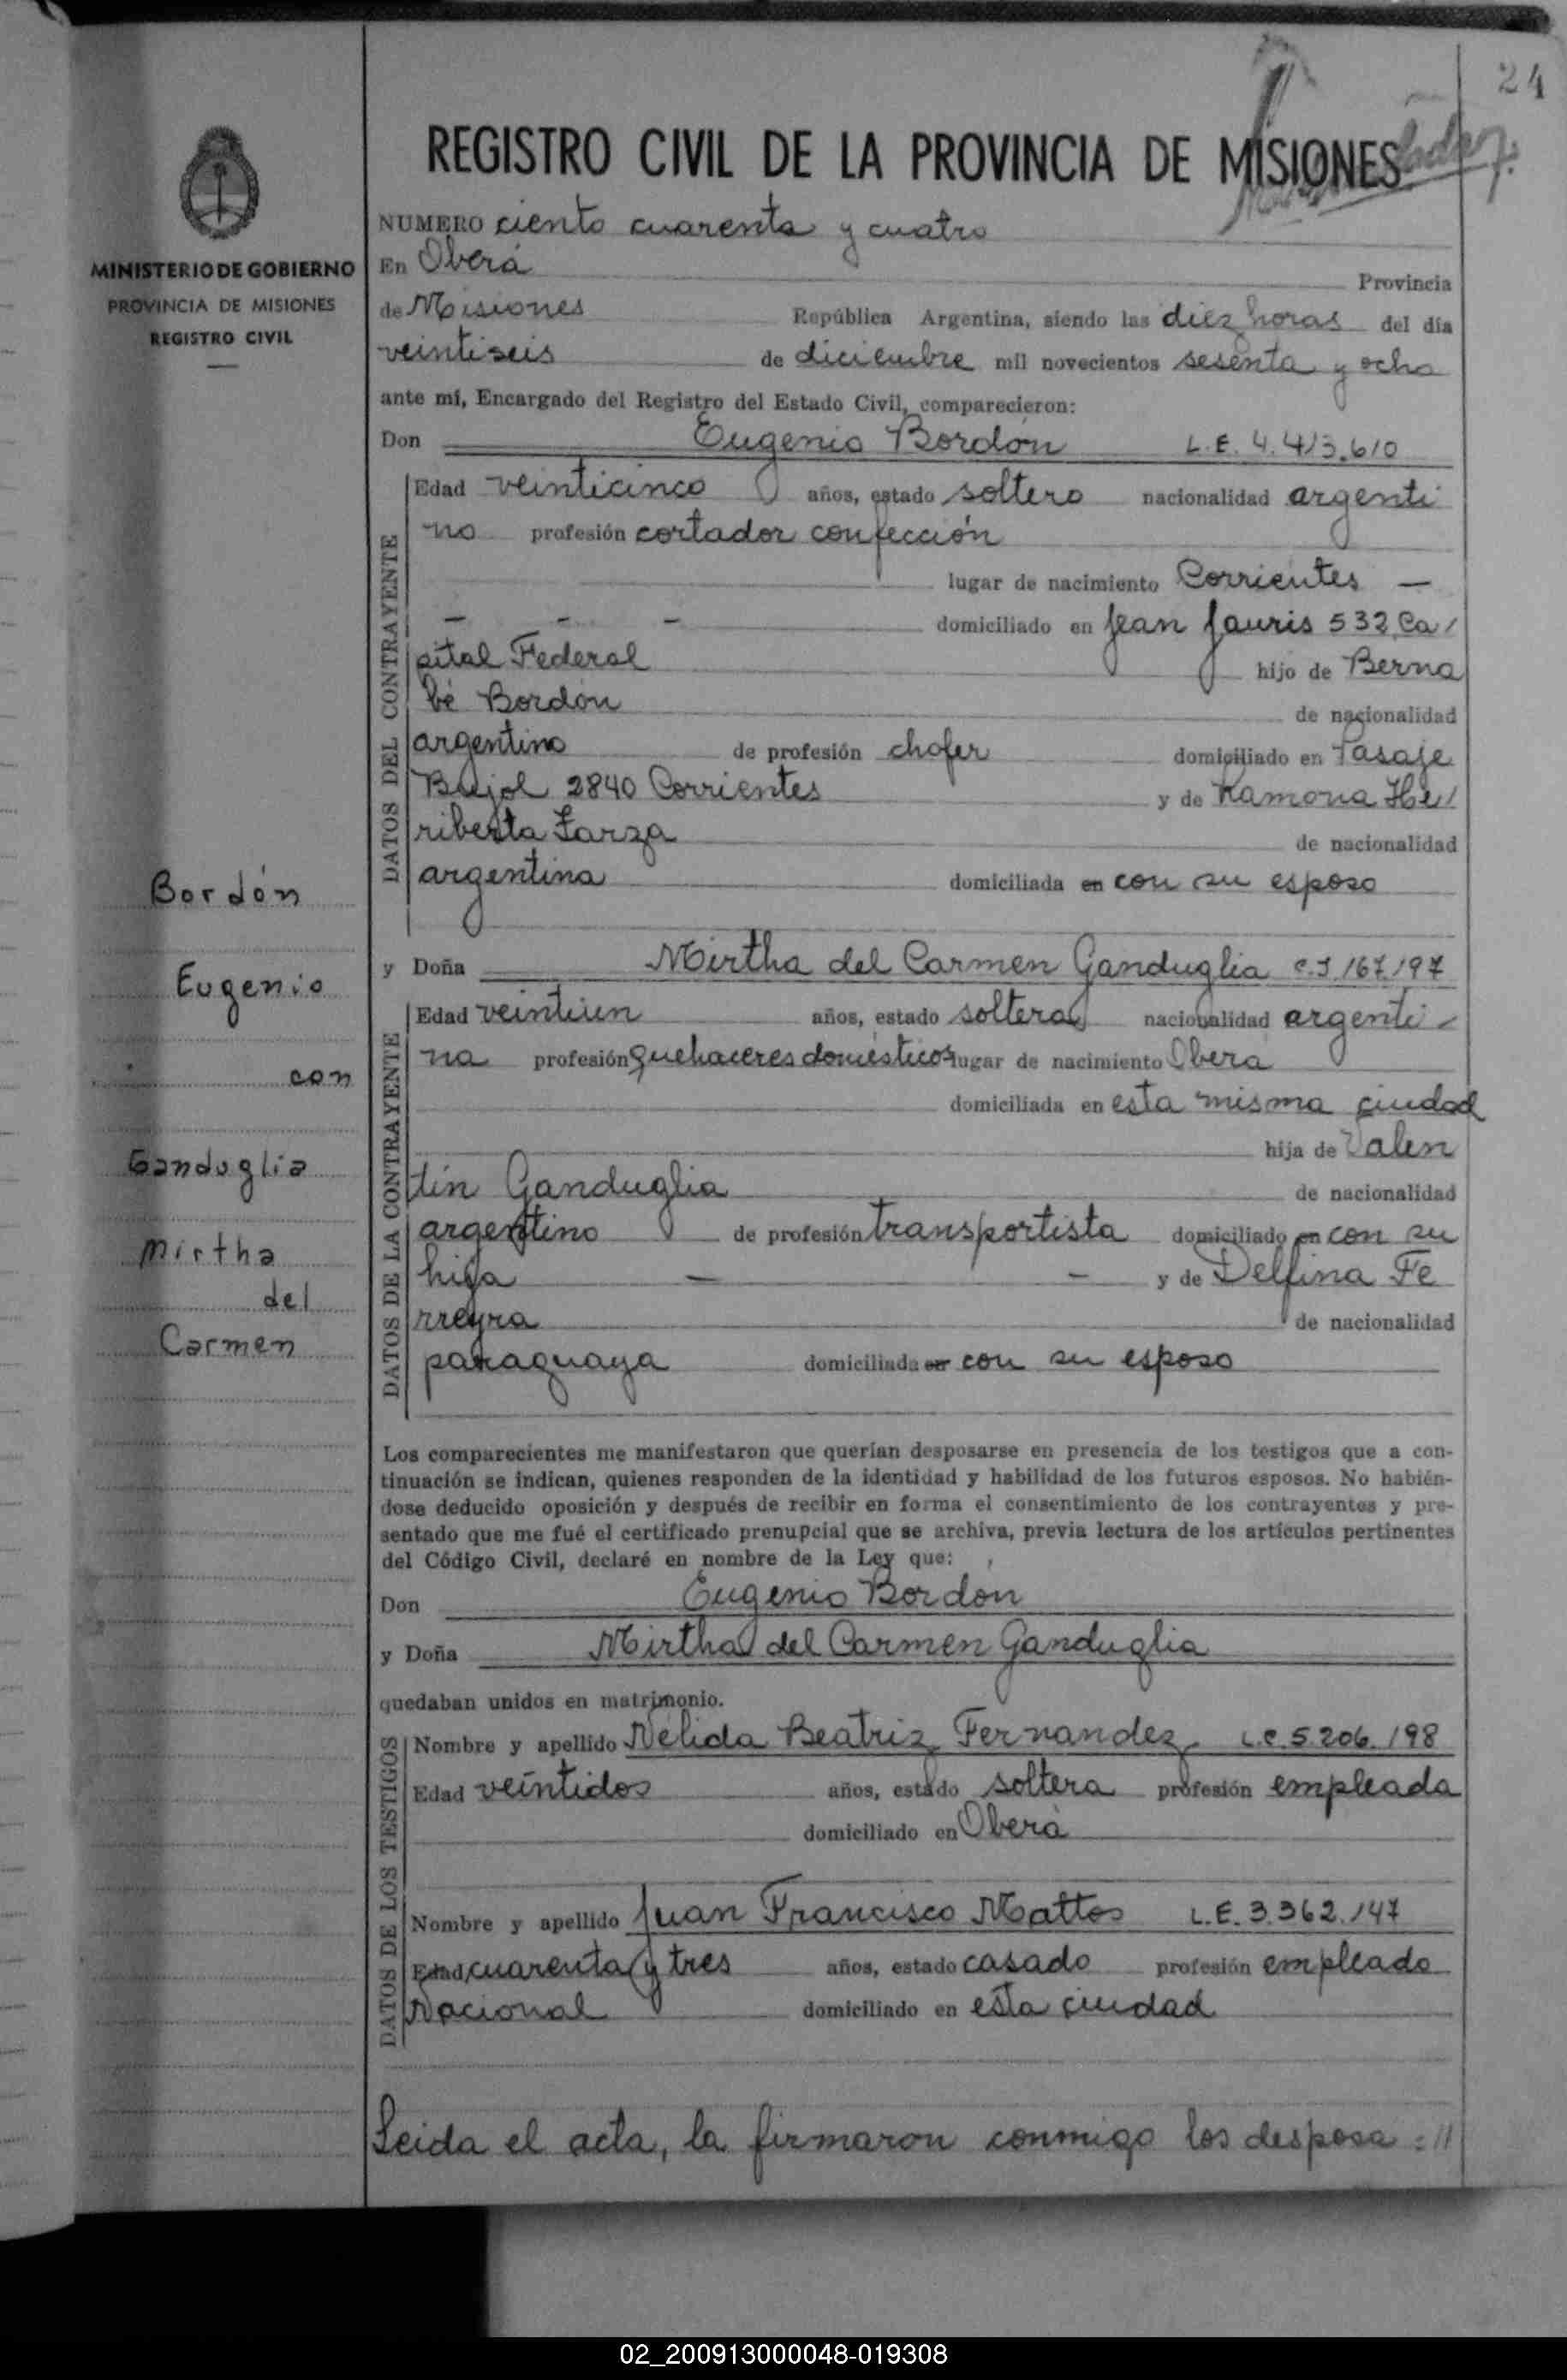 24
REGISTRO CIVIL DE LA PROVINCIA DE MISIONES
MINISTERIO DE GOBIERNO
PROVINCIA DE MISIONES
REGISTRO CIVIL
NUMERO ciento cuarenta y cuatro
En Oberá Provincia
de Misiones República Argentina, siendo las diez horas del día
veintiseis de diciembre mil novecientos sesenta y ocho
ante mí, Encargado del Registro del Estado Civil, comparecieron:
Don Eugenio Bordón L.E. 4.413.610
DATOS DEL CONTRAYENTE
Edad veinticinco años, estado soltero nacionalidad argenti
no profesión cortador confección
lugar de nacimiento Corrientes —
— — — domiciliado en Jean Jauris 532 Ca/
pital Federal hijo de Berna
bé Bordón de nacionalidad
argentino de profesión chofer domiciliado en Pasaje
2840 Corrientes y de Ramona He/
riberta Zarza de nacionalidad
argentina domiciliada en con su esposo
y Doña Mirtha del Carmen Ganduglia C.I 167197
DATOS DE LA CONTRAYENTE
Edad veintiun años, estado soltera nacionalidad argenti-
na profesión quehaceres domésticos lugar de nacimiento Oberá
domiciliada en esta misma ciudad
hija de Valen
tín Ganduglia de nacionalidad
argentino de profesión transportista domiciliado en con su
hija — — y de Delfina Fe
rreyra de nacionalidad
paraguaya domiciliada en con su esposo
Bordón
Eugenio
con
Ganduglia
Mirtha
del
Carmen
Los comparecientes me manifestaron que querían desposarse en presencia de los testigos que a con-
tinuación se indican, quienes responden de la identidad y habilidad de los futuros esposos. No habién-
dose deducido oposición y después de recibir en forma el consentimiento de los contrayentes y pre-
sentado que me fué el certificado prenupcial que se archiva, previa lectura de los artículos pertinentes
del Código Civil, declaré en nombre de la Ley que:
Don Eugenio Bordón
y Doña Mirtha del Carmen Ganduglia
quedaban unidos en matrimonio.
DATOS DE LOS TESTIGOS
Nombre y apellido Nélida Beatriz Fernandez L.C. 5.206.198
Edad veintidos años, estado soltera profesión empleada
domiciliado en Oberá
Nombre y apellido Juan Francisco Mattos L.E. 3.362.147
Edad cuarenta y tres años, estado casado profesión empleado
Nacional domiciliado en esta ciudad
Leida el acta, la firmaron conmigo los desposa=//
02_200913000048-019308